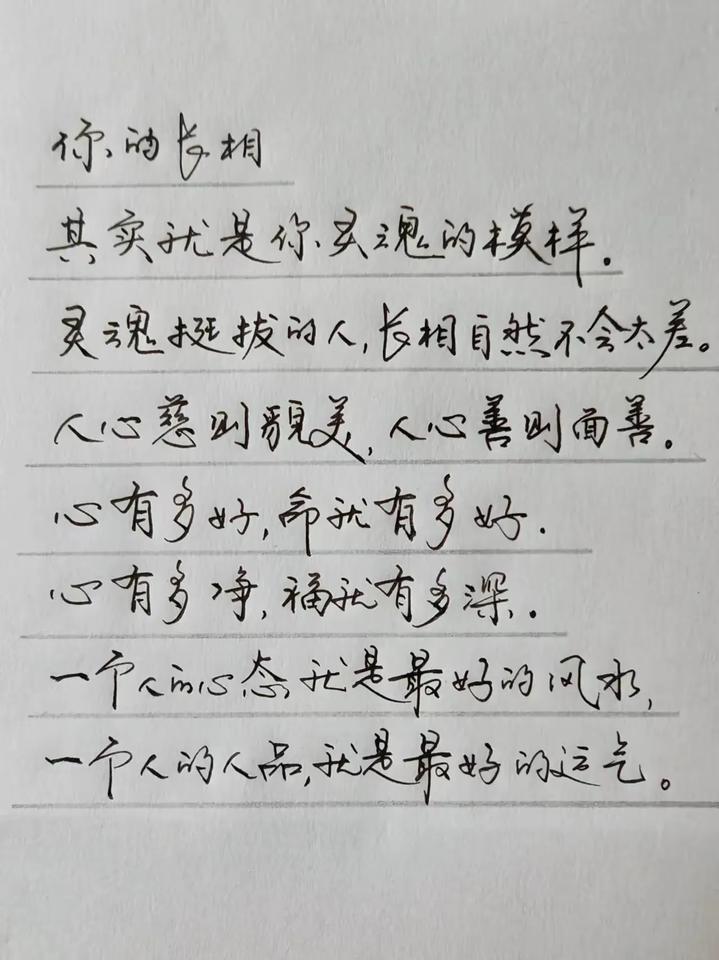 你的长相
其实就是你灵魂的模样.
灵魂挺拔的人,长相自然不会太差。
人心慈则貌美,人心善则面善。
心有多好,命就有多好.
心有多净,福就有多深.
一个人的心态,就是最好的风水,
一个人的人品,就是最好的运气。